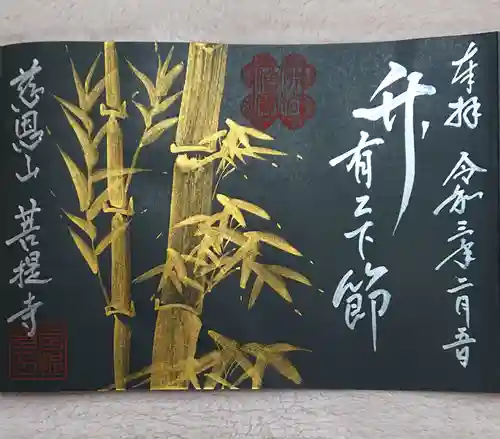 奉拝 令和三年二月吉日
竹
有上下節
慈恩山 菩提寺